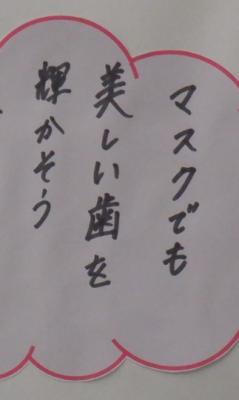 マスクでも
美しい歯を
輝かそう